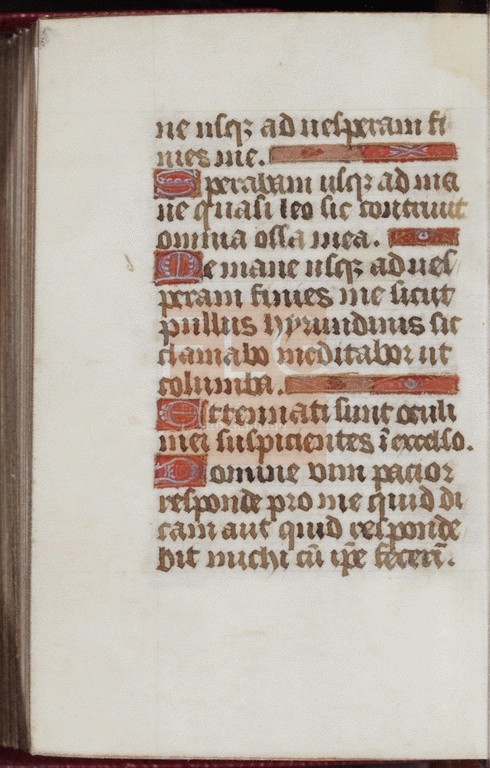 ne usqꝫ ad uesperam fi
nies me.
Sperabam usqꝫ ad ma
ne quasi leo sic contriuit
omnia ossa mea.
De mane usqꝫ ad ues
peram finies me sicut
pullus hyrundinis sic
clamabo meditabor ut
columba.
Attenuati sunt oculi
mei suspicientes ī excelso.
Domine vim pacior
responde pro me quid di
cam aut quid responde
bit michi cū ip̄e fecerī.